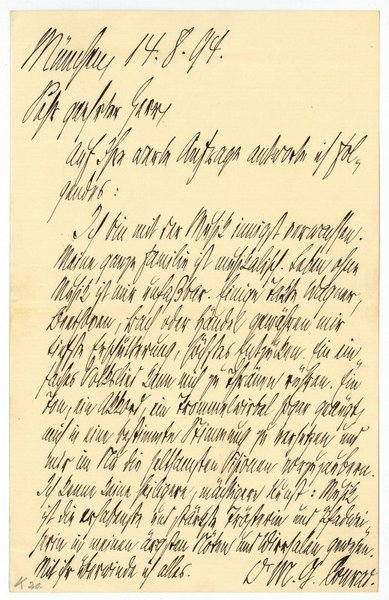 München, 14. 8. 94.
Sehr geehrter Herr,
Auf Ihre werte Anfrage antworte ich Fol-
gendes:
Ich bin mit der Musik innigst verwachsen.
Meine ganze Familie ist musikalisch. Leben ohne
Musik ist mir unfaßbar. Einige Takte Wagner,
Beethoven, Bach oder Händel gewähren mir
tiefste Erschütterung, höchstes Entzücken. Ein ein-
faches Volkslied kann mich zu Thränen rühren. Ein
Ton, ein Akkord, ein Trommelwirbel sogar genügt,
mich in eine bestimmte Stimmung zu versetzen und
mir im Nu die seltsamsten Visionen vorzuzaubern.
Ich kenne keine heiligere, mächtigere Kunst: Musik
ist die erhabenste und stärkste Trösterin und
in meinen ärgsten Nöten und Wirrsalen gewesen.
Mit ihr überwinde ich alles.
Dr M. G. Conrad.
K 20